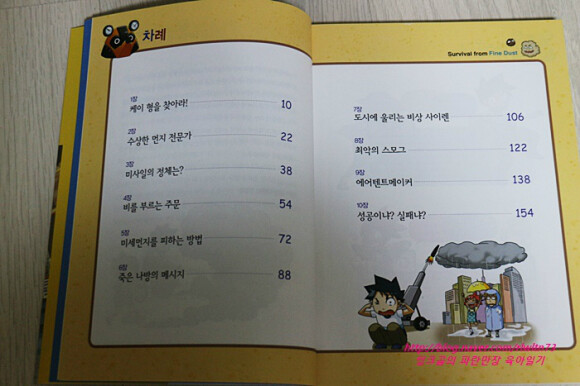 차례
1장
케이 형을 찾아라! 10
2장
수상한 먼지 전문가 22
3장
미사일의 정체는? 38
4장
비를 부르는 주문 54
5장
미세먼지를 피하는 방법 72
6장
죽은 나방의 메시지 88
Survival from Fine Dust
7장
도시에 울리는 비상 사이렌 106
8장
최악의 스모그 122
9장
에어텐트메이커 138
10장
성공이냐? 실패냐? 154
파란만장 육아일기